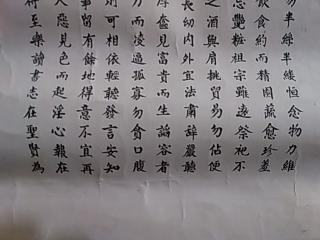 易半絲半縷恒念物力維
飲食約而精園蔬愈珍羞
忌艷粧祖宗雖遠祭祀不
之酒與肩挑貿易勿佔便
長幼內外宜法肅辭嚴聽
厚奩見富貴而生諂容者
力而凌逼孤寡勿貪口腹
則可相依輕聽發言安知
事留有餘地得意不宜再
人惡見色而起淫心報在
符至樂讀書志在聖賢為